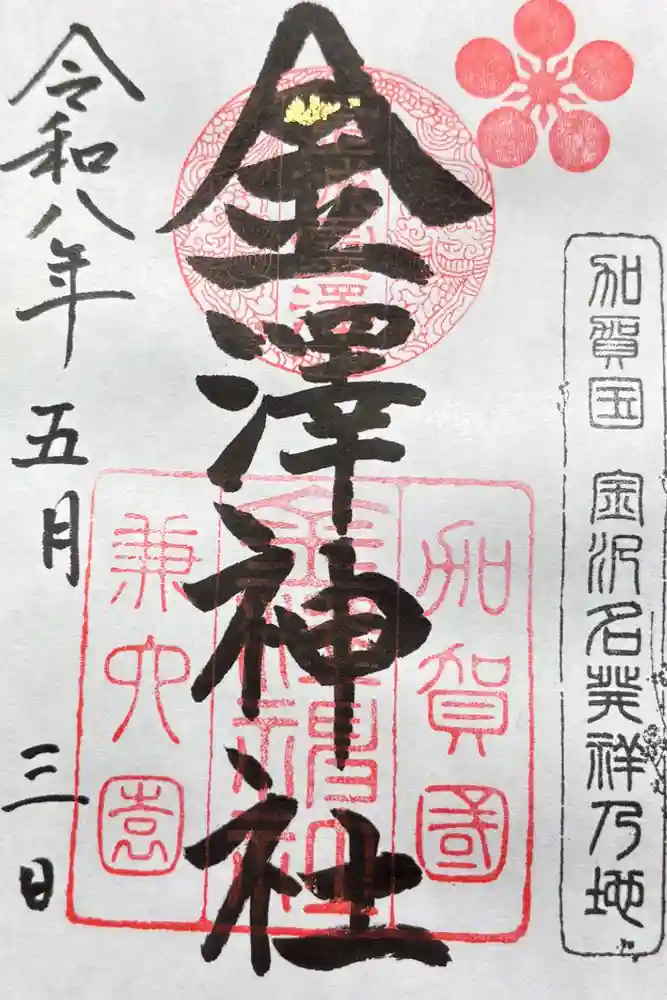 加賀国 金沢名発祥乃地
金澤神社
加賀國
金澤神社
兼六園
令和八年五月三日